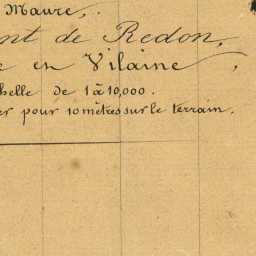 Maure,
nt de Redon,
e en Vilaine,
helle de 1 à 10,000.
er pour 10 mètres sur le terrain.